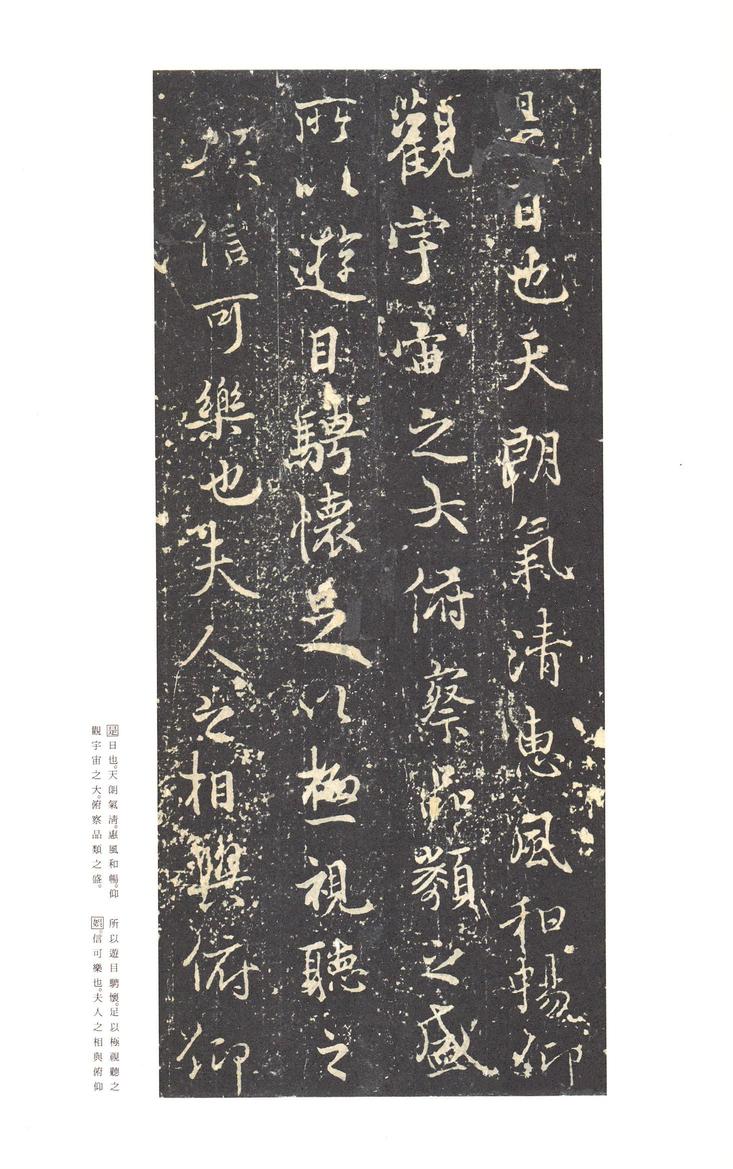 是日也天朗氣清惠風和暢仰
觀宇宙之大俯察品類之盛
所以遊目騁懷足以極視聽之
娛信可樂也夫人之相與俯仰
是日也。天朗氣清。惠風和暢。仰
觀宇宙之大。俯察品類之盛。
所以遊目騁懷。足以極視聽之
娛。信可樂也。夫人之相與俯仰